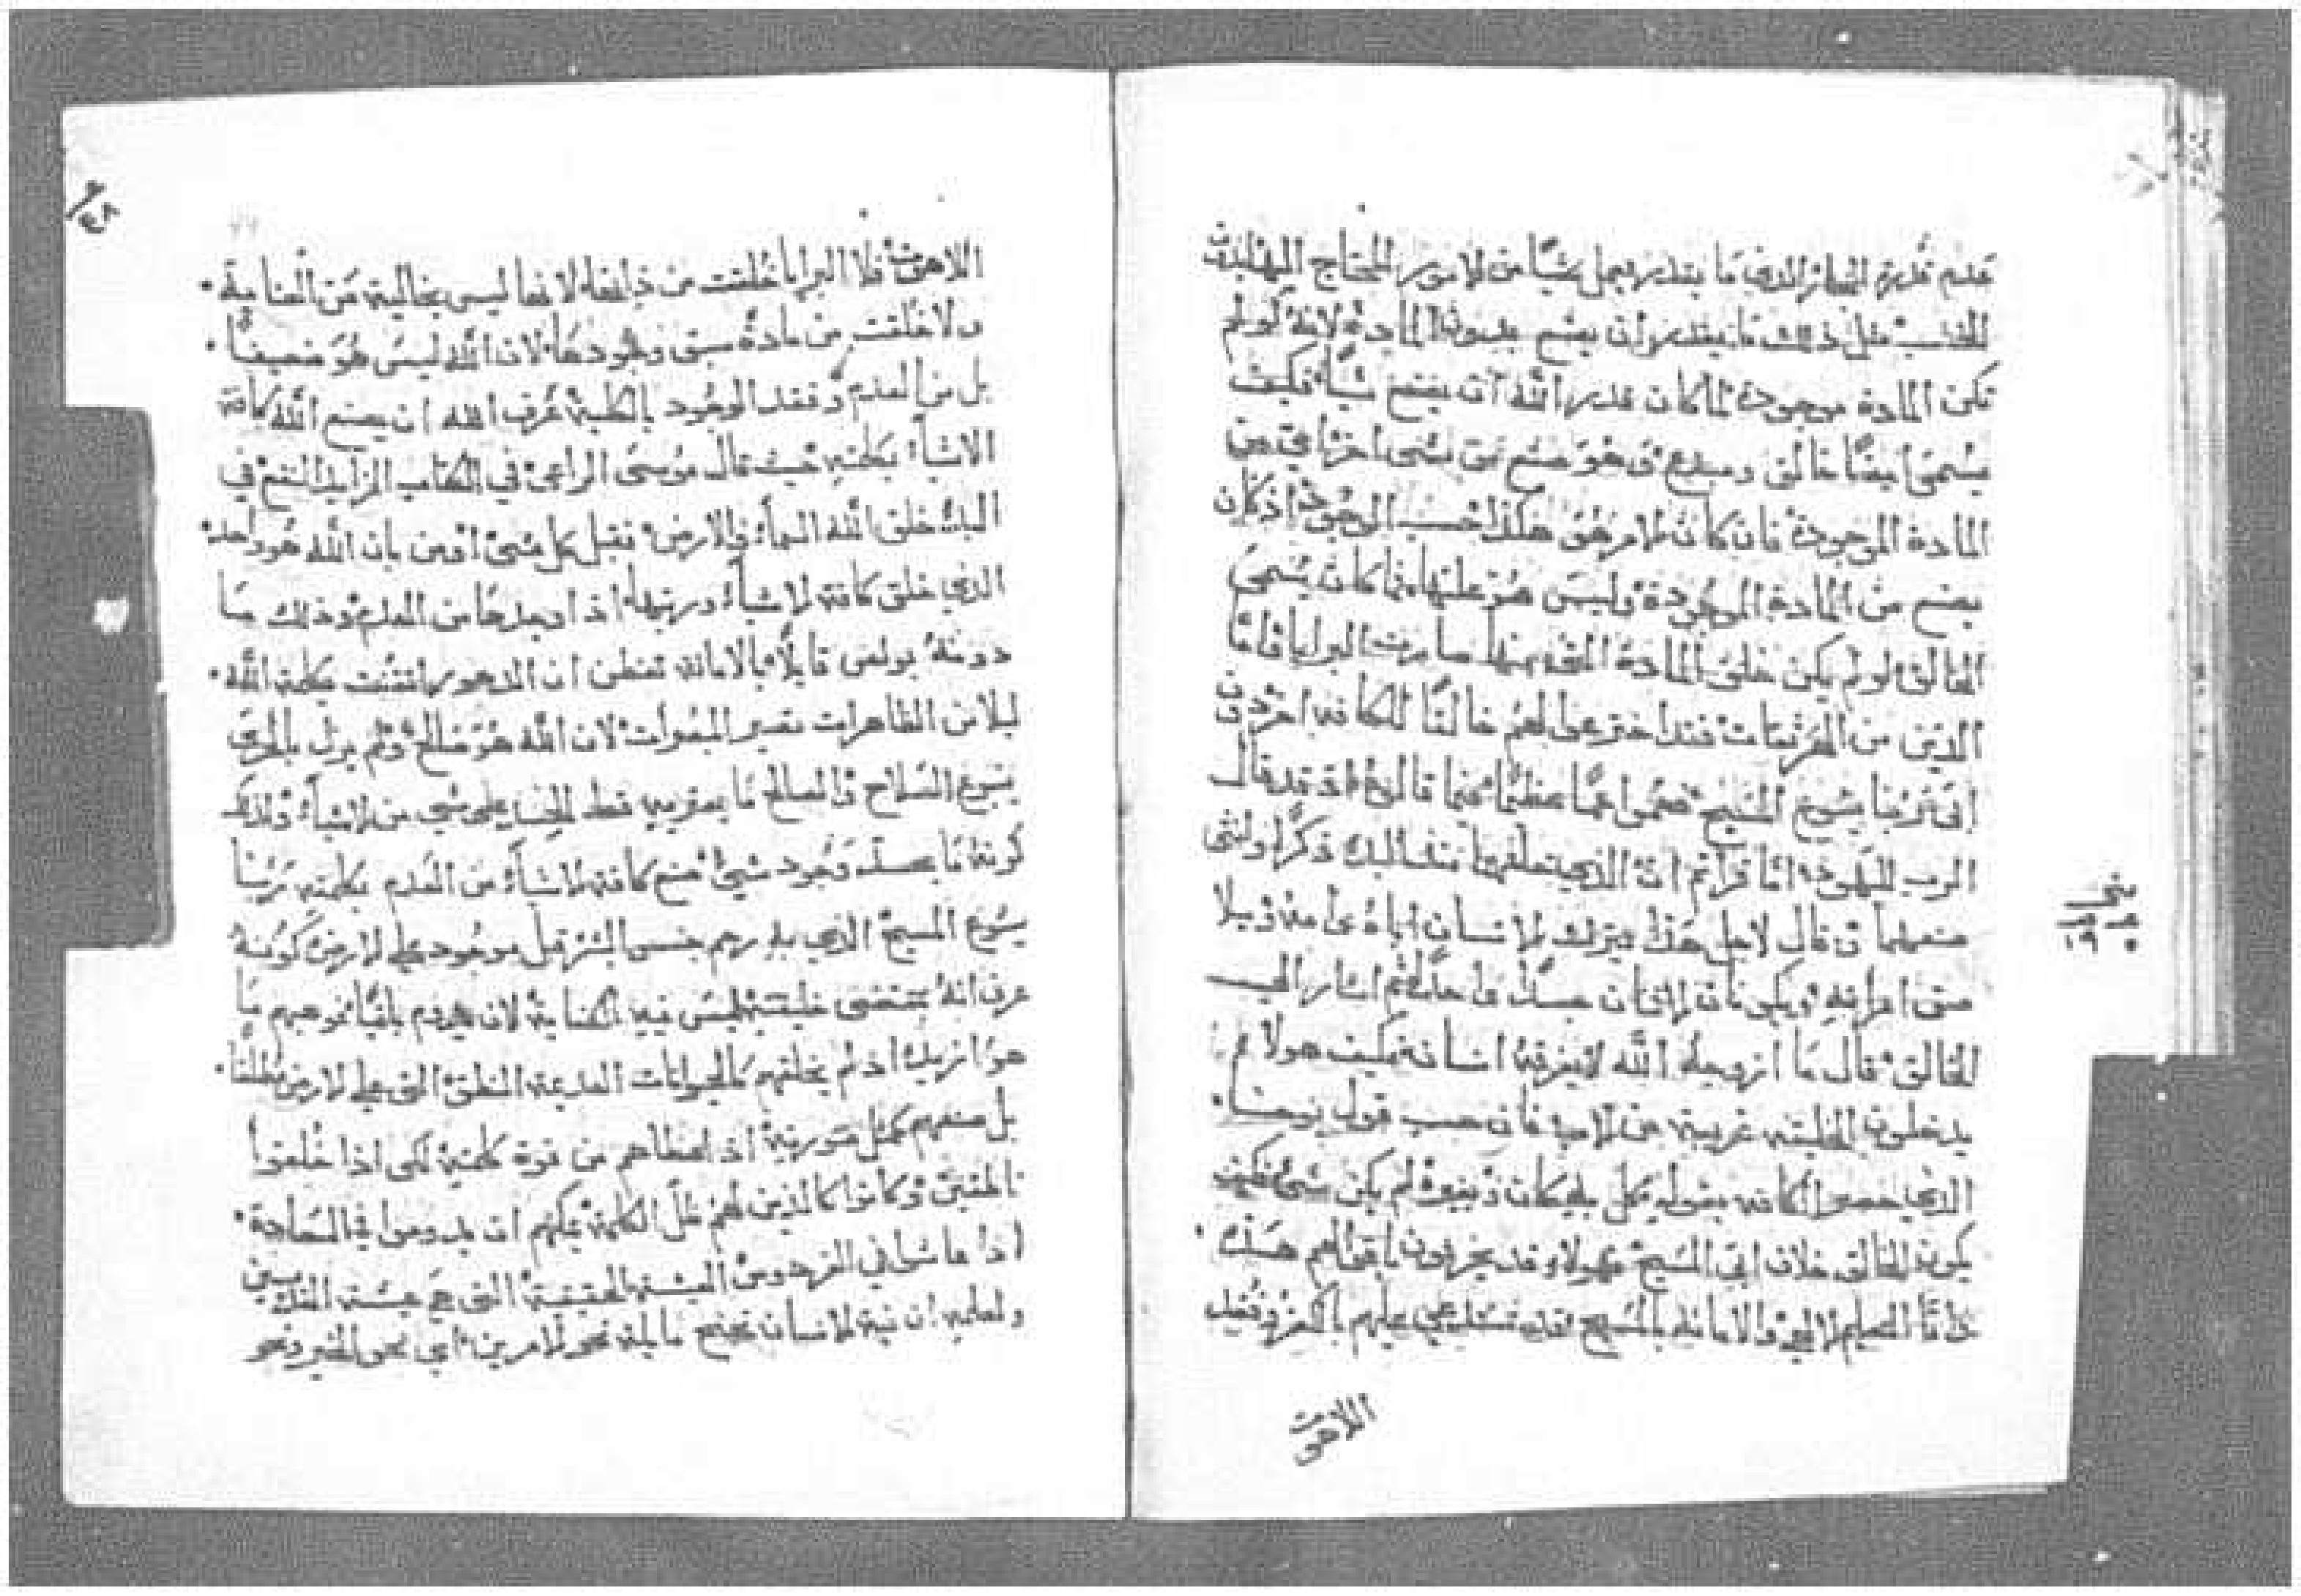 عدم قدرة النجار الذي ما يقدر يعمل شيًا من الامور المحتاج اليها لبدون
الخشب مثل ذلك ما يقدر ان يصنع بدون المادة لانه لو لم
تكن المادة موجودة لما كان قدر الله ان يصنع شيًا فكيف
يسمى ايضًا خالق ومبدع وهو صنع من شي اخر اعني من
المادة الموجودة فان كان الامر هو هكذا حسب اذ كان
يصنع من المادة الموجودة وليس هو علتها فما كان يسمى
الخالق لو لم يكن خلق المادة التي منها صارت البرايا فاما
الذين من الهرثقات فقد اخترعوا لهم خالقًا للكافه اخر دون
ابي ربنا يسوع المسيح فعموا عما عظيمًا فيما قالوه قد قال
الرب لليهود اما قراتم ان الذي خلقهما منذ البدء ذكرًا وانثى
صنعهما وقال لاجل هذا يترك الانسان اباه وامه
امراته ويكونان الاثنان جسدًا واحدًا ثم اشار الى
الخالق وقال ما ازوجه الله لا يفرقه انسان فكيف هولاء
يدخلون الخليقه غريبة من الاب فان حسب قول يوحنا
الذي حصر الكافه بقوله كل به كان وبغيره لم يكن شي فكيف
يكون الخالق خلاف ابي المسيح فهولاء قد يخرفون باقوالهم هذه
فاما التعليم الالهي والامانه بالمسيح عليهم بالكفر
اللاهوت
متى
١٩
٤٨
اللاهوت فلا البرايا خلقت من ذاتها لانها ليس بخالية من العناية
ولا خلقت من مادة سبق وجودها لان الله ليس هو ضعيفًا
بل من العدم وفقد الوجود بالكلية عرف الله ان يصنع الله كافة
الاشيا بكلمته حيث قال موسى الراعي في الكتاب الزايد النفع في
البدء خلق الله السماء والارض فقبل كل شي اومن بان الله هو واحد
الذي خلق كافة الاشياء ورتبها اذ اوجدها من العدم وذلك ما
بولس قايلًا بالامانة نفطن ان الدهور اتقنت بكلمة الله
ليلا من الظاهرات تصير المبصرات لان الله هو صالح ولم يزل بالحري
ينبوع الصلاح والصالح ما يعتريه قط الحسد على شي من الاشياء ولذلك
كونه ما يحسد وجود شي صنع كافة الاشياء من العدم بكلمته ربنا
يسوع المسيح الذي به رحم جنس البشر قبل موجود على الارض كونه
عرف انه بمقتضى خليقته ليس فيه الكفاية لان يدوم باقيًا
اذ لم يخلقهم كالحيوانات العديمة النطق التي على الارض مطلقًا
بل صنعهم كمثل صورته اذ اعطاهم من قوة كلمته لكي اذا خلقوا
ناطقين وكانوا كالذين لهم ظل الكلمة يمكنهم ان يدوموا في السعادة
اذا عاشوا في الفردوس العيشة الحقيقية التي هي عيشة القديسين
ولعلمه ان نية الانسان تجنح مايلة نحو الامرين اي نحو الخير ونحو